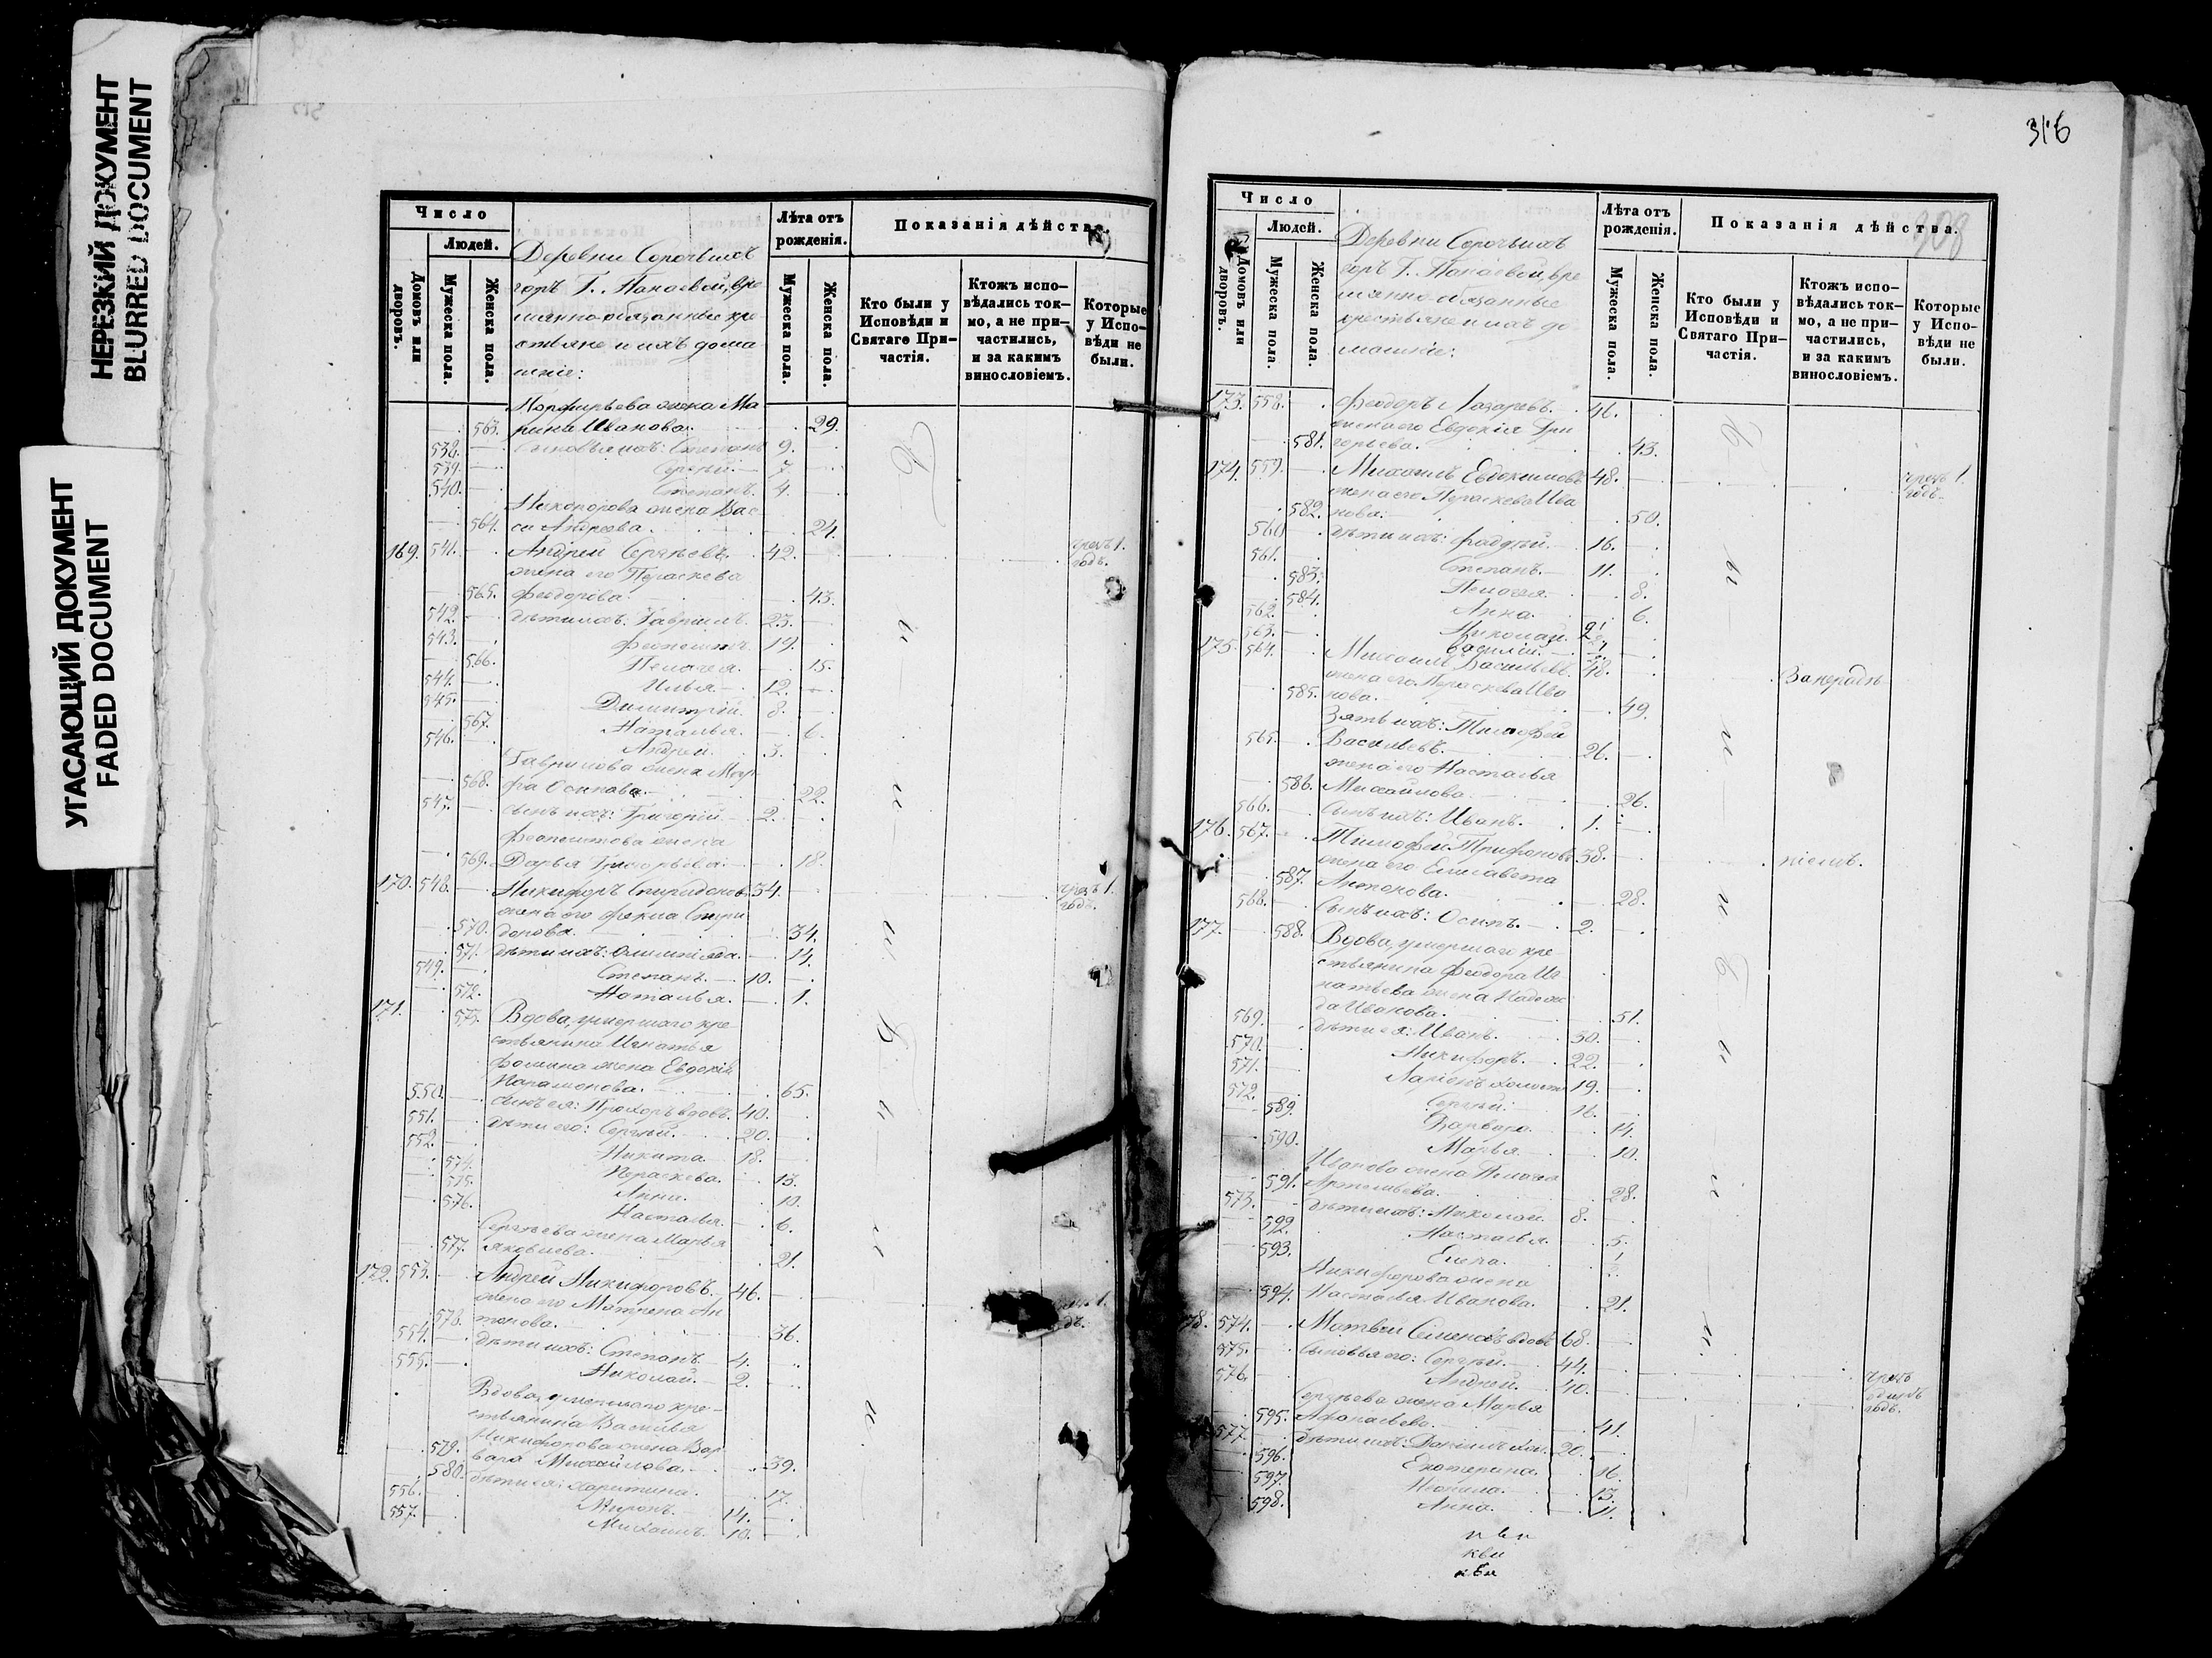 НЕРЕЗКИЙ ДОКУМЕНТ
BLURRED DOCUMENT
УГАСАЮЩИЙ ДОКУМЕНТ
FADED DOCUMENT
Число
Людей.
Домовъ или дворовъ.
Мужеска пола.
Женска пола.
Деревни Сорочьихъ
горъ Г. Панаевой, вре
менно-обязанные кре
стьяне и ихъ дома
шніе:
Лѣта отъ рожденія.
Мужеска пола.
Женска пола.
Показанія дѣйства.
Кто были у Исповѣди и Святаго Причастія.
Ктожъ исповѣдались токмо, а не причастились, и за какимъ винословіемъ.
Которые у Исповѣди не были.
Порфирьева жена Ма
563. рина Иванова. 29.
538. Сыновья ихъ: Степанъ 9.
539. Сергѣй. 7.
540. Степанъ. 4.
Никонорова жена Вас
564. са Андреева. 24.
169. 541. Андрей Сергѣевъ. 42. чрезъ 1. годъ.
жена его Параскева
565. Феодорова. 43.
542. дѣти ихъ: Гавріилъ. 23.
543. Феопемптъ. 19.
566. Пелагея. 15.
544. Илья. 12.
545. Димитрій. 8.
567. Наталья. 6.
546. Андрей. 3.
Гаврилова жена Мар
568. фа Осипова. 22.
547. сынъ ихъ: Григорій. 2.
Феопемптова жена
569. Дарья Григорьева. 18.
170. 548. Никифоръ Спиридоновъ 34. чрезъ 1. годъ.
жена его Фекла Спири
570. донова. 34.
571. дѣти ихъ: Олимпіада. 14.
549. Степанъ. 10.
572. Наталья. 1.
171. 573. Вдова, умершаго кре
стьянина Игнатья
Фомина жена Евдокія
Парамонова. 65.
550. сынъ ея: Прохоръ вдовъ. 40.
551. дѣти его: Сергѣй. 20.
552. Никита. 18.
574. Параскева. 13.
575. Анна. 10.
576. Настасья. 6.
Сергѣева жена Марья
577. Яковлева. 21.
172. 553. Андрей Никифоровъ. 46.
жена его Матрена Ан
578. тонова. 36.
554. дѣти ихъ: Степанъ. 4.
555. Николай. 2.
Вдова, умершаго кре-
стьянина Василья
Никифорова жена Вар
579. вара Михайлова. 39.
580. дѣти ея: Харитина. 17.
556. Миронъ. 14.
557. Михаилъ. 10.
316
308
Число
Людей.
Домовъ или дворовъ.
Мужеска пола.
Женска пола.
Деревни Сорочьихъ
горъ Г. Панаевой, вре
менно-обязанные
крестьяне и ихъ до
машніе:
Лѣта отъ рожденія.
Мужеска пола.
Женска пола.
Показанія дѣйства.
Кто были у Исповѣди и Святаго Причастія.
Ктожъ исповѣдались токмо, а не причастились, и за какимъ винословіемъ.
Которые у Исповѣди не были.
173. 558. Феодоръ Лазаревъ. 46.
жена его Евдокія Гри
581. горьева. 43.
174. 559. Михаилъ Евдокимовъ 48. чрезъ 1. годъ.
жена его Параскева Ива
582. нова. 50.
560. дѣти ихъ: Фаддей. 16.
561. Степанъ. 11.
583. Пелагея. 8.
584. Анна. 6.
562. Николай. 2.
563. Василій.
175. 564. Михаилъ Васильевъ. 48. За нерадѣ
жена его Параскева Ива
585. нова. 49.
Зять ихъ: Тимофей
565. Васильевъ. 26.
жена его Настасья
586. Михайлова. 26.
566. Сынъ ихъ: Иванъ. 1.
176. 567. Тимофей Трифоновъ 38. ніемъ.
жена его Елисавета
587. Антонова. 28.
568. Сынъ ихъ: Осипъ. 2.
177. 588. Вдова, умершаго кре
стьянина Феодора Иг
натьева жена Надеж
да Иванова. 51.
569. дѣти ея: Иванъ. 30.
570. Никифоръ. 22.
571. Ларіонъ холостъ 19.
572. Сергѣй. 16.
589. Варвара. 14.
590. Марья. 10.
Иванова жена Пелагея
591. Артемьева. 28.
573. дѣти ихъ: Николай. 8.
592. Настасья. 5.
593. Елена.
Никифорова жена
594. Настасья Иванова. 21.
178. 574. Матвѣй Семеновъ вдовъ 68.
575. Сыновья его: Сергѣй. 44.
576. Андрей. 40. чрезъ одинъ годъ.
Сергѣева жена Марья
595. Афанасьева. 41.
577. дѣти ихъ: Даніилъ хол. 20.
596. Екатерина. 16.
597. Неонила. 13.
598. Анна. 11.